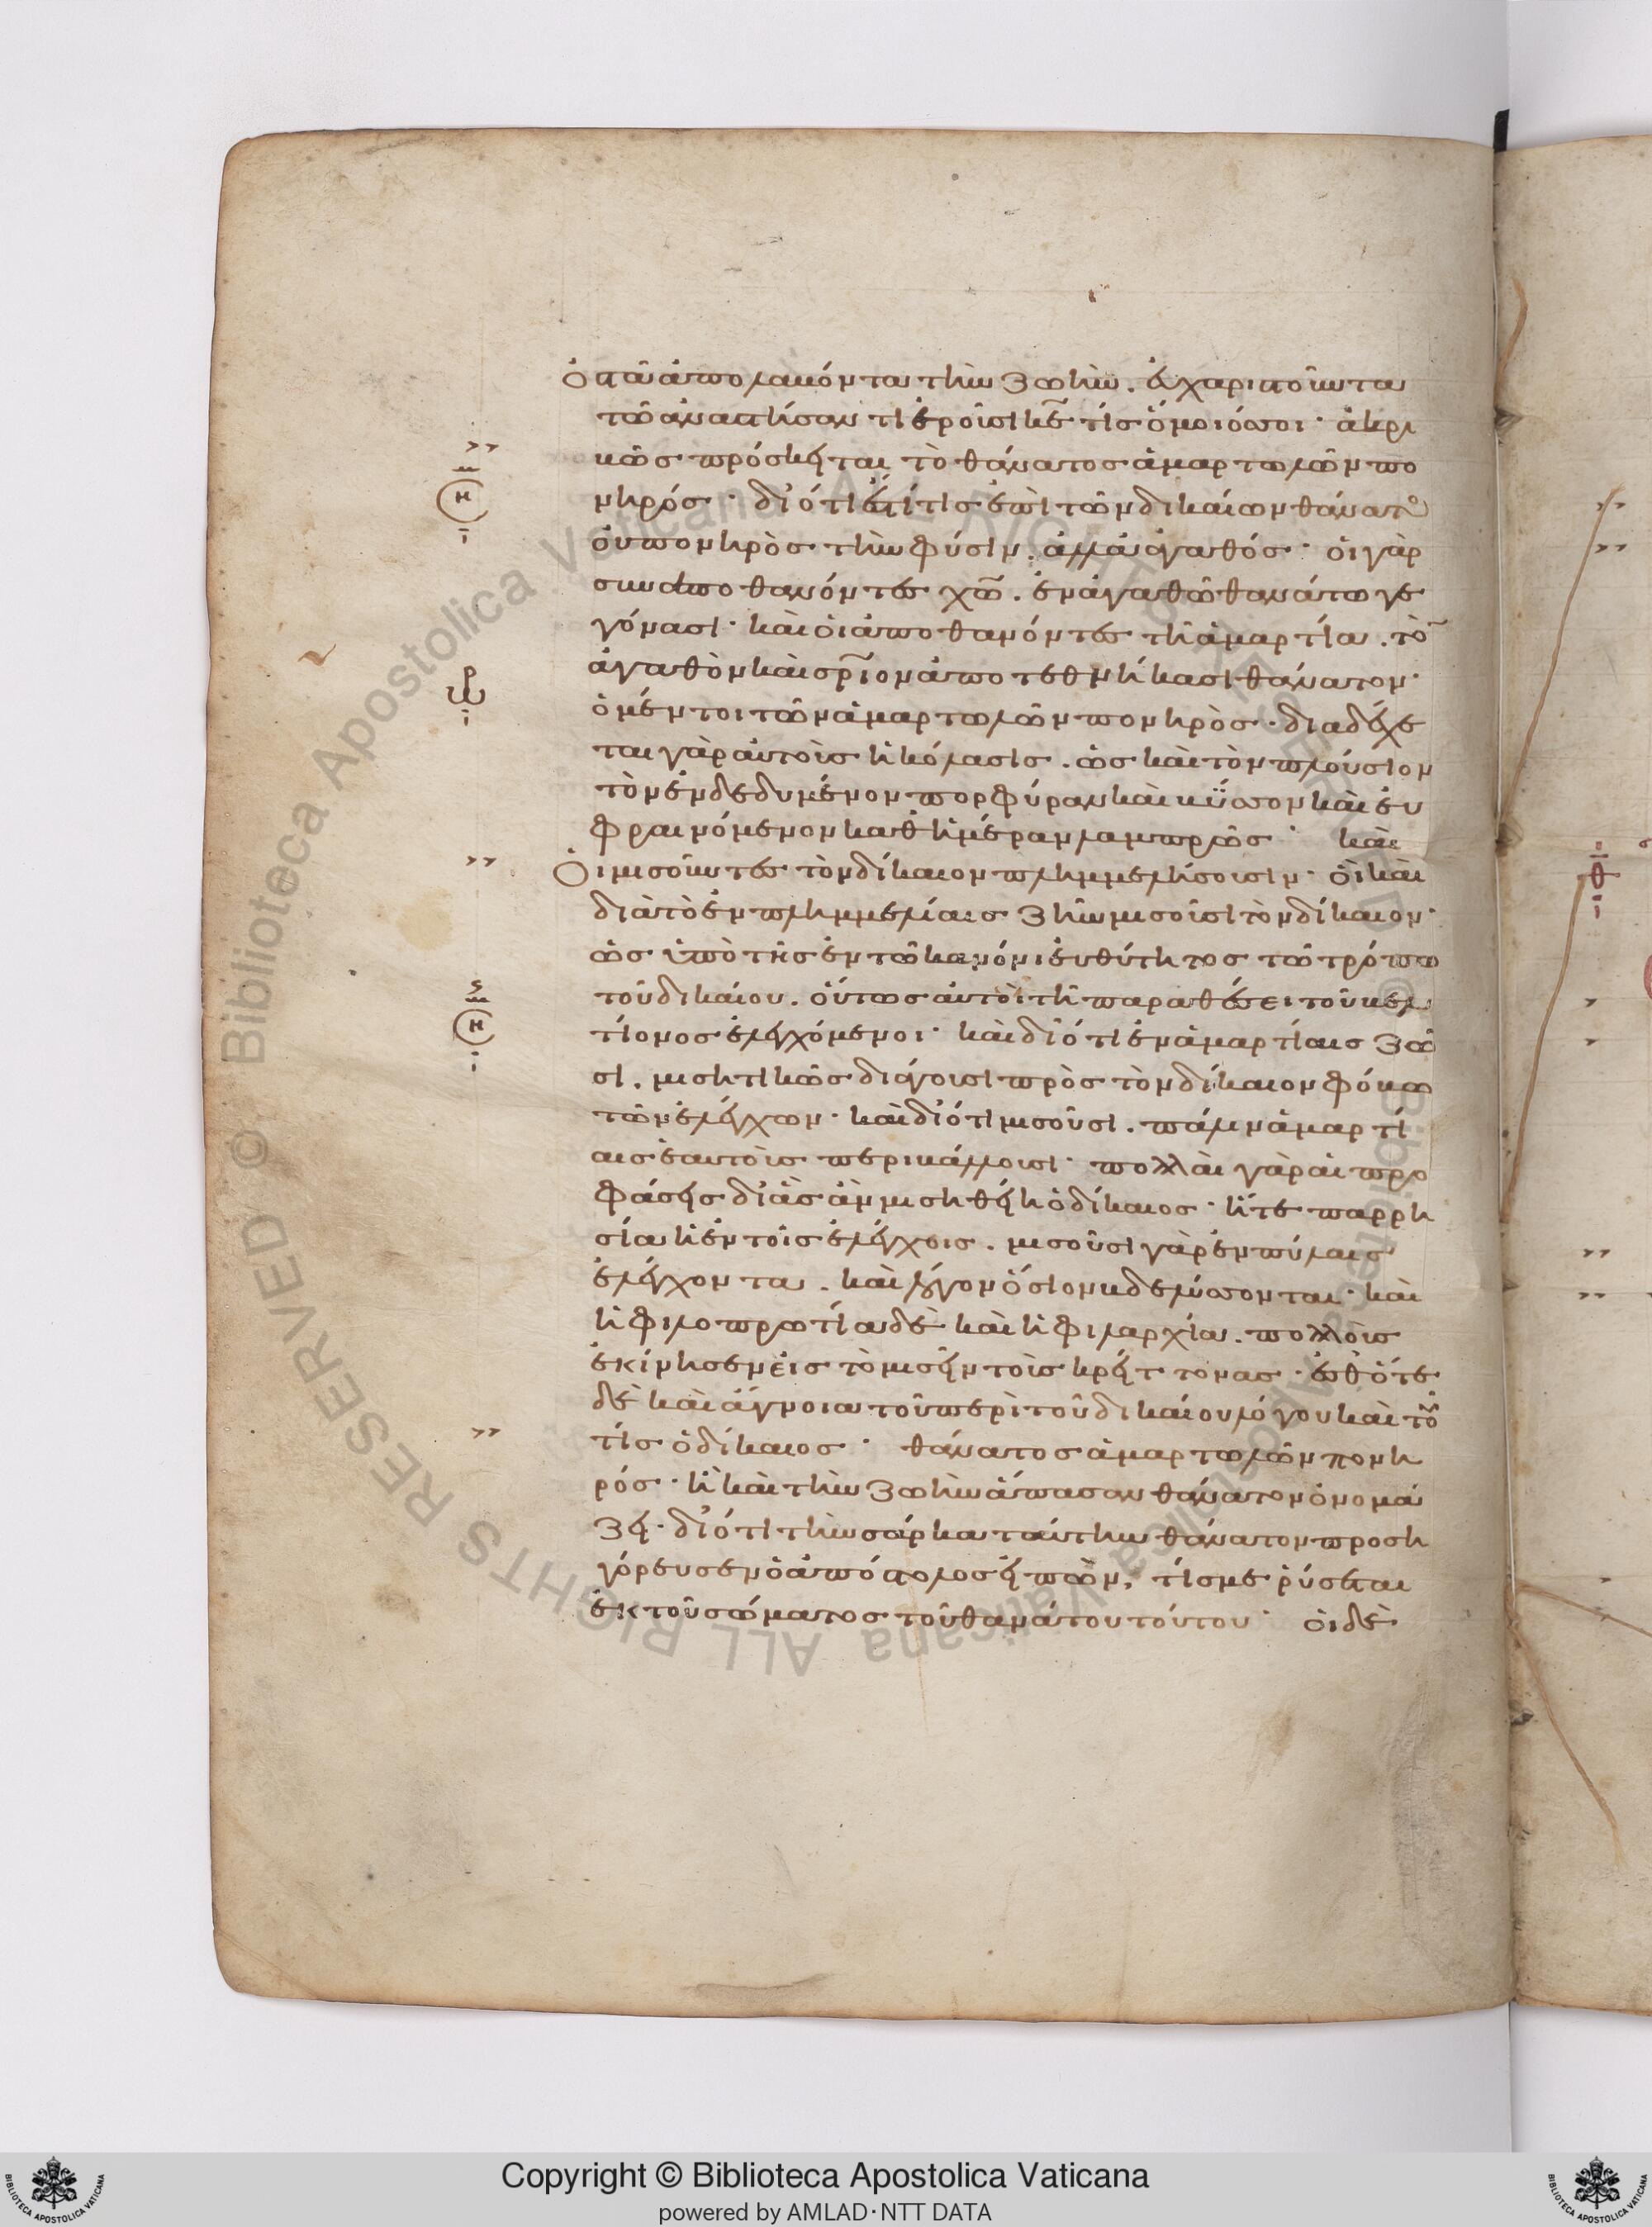 ὅταν ἀπολαβόντα τὴν ζωὴν. εὐχαριστοῦντα
τῶ ἀναστήσαντι ἐροῦσι κε τίς ὅμοιός σοι· ἀκρι
βῶς πρόσκειται τὸ θάνατος ἁμαρτωλῶν πο
νηρός· διότι ἔστί τις ἐπὶ τῶν δικαίων θάνατος
οὐ πονηρὸς τὴν φύσιν. ἀλλὰ ἀγαθός· οἱ γὰρ
συναποθανόντες χω. ἐν ἀγαθῶ θανάτω γε
γόνασι· καὶ οἱ ἀποθανόντες τῆ ἁμαρτία. τὸν
ἀγαθὸν καὶ σριον ἀποτεθνήκασι θάνατον·
ὁ μέντοι τῶν ἁμαρτωλῶν πονηρὸς· διαδέχε
ται γὰρ αὐτοὺς ἡ κόλασις. ὡς καὶ τὸν πλούσιον
τὸν ἐνδεδυμένον πορφύραν καὶ βύσσον καὶ εὐ
φραινόμενον καθ ἡμέραν λαμπρῶς· καὶ
Οἱ μισοῦντες τὸν δίκαιον πλημμελήσουσιν· οἳ καὶ
διὰ τὸ ἐν πλημμελίαις ζῆν μισοῦσι τὸν δίκαιον·
ὡς ὑπὸ τῆς ἐν τῶ κανόνι εὐθύτητος τῶ τρόπω
τοῦ δικαίου. οὕτως αὐτοὶ τῆ παραθέσει τοῦ βελ
τίονος ἐλεγχόμενοι· καὶ διότι ἐν ἁμαρτίαις ζῶ
σι. μισητικῶς διάγουσι πρὸς τὸν δίκαιον φόβω
τῶν ἐλέγχων· καὶ διότι μισοῦσι. πάλιν ἁμαρτί
αις ἑαυτοὺς περιβάλλουσι· πολλαὶ γὰρ αἱ προ
φάσεις δι ἃς ἂν μισηθείη ὁ δίκαιος· ἥτε παρρη
σία ἡ ἐν τοῖς ἐλέγχοις. μισοῦσι γὰρ ἐν πύλαις
ἐλέγχοντα. καὶ λόγον ὅσιον βδελύσσονται· καὶ
ἡ φιλοπρωτία δὲ καὶ ἡ φιλαρχία. πολλοὺς
ἐκίνησεν εἰς τὸ μισεῖν τοὺς κρείττονας· ἔσθ ὅτε
δὲ καὶ ἄγνοια τοῦ περὶ τοῦ δικαίου λόγου καὶ τοῦ
τίς ὁ δίκαιος· θάνατος ἁμαρτωλῶν πονη
ρός· ἢ καὶ τὴν ζωὴν ἅπασαν θάνατον ὀνομά
ζει· διότι τὴν σάρκα ταύτην θάνατον προση
γόρευσεν ὁ ἀπόστολος εἰπὼν, τίς με ῥύσεται
ἐκ τοῦ σώματος τοῦ θανάτου τούτου· οἱ δὲ
Copyright © Biblioteca Apostolica Vaticana
powered by AMLAD·NTT DATA